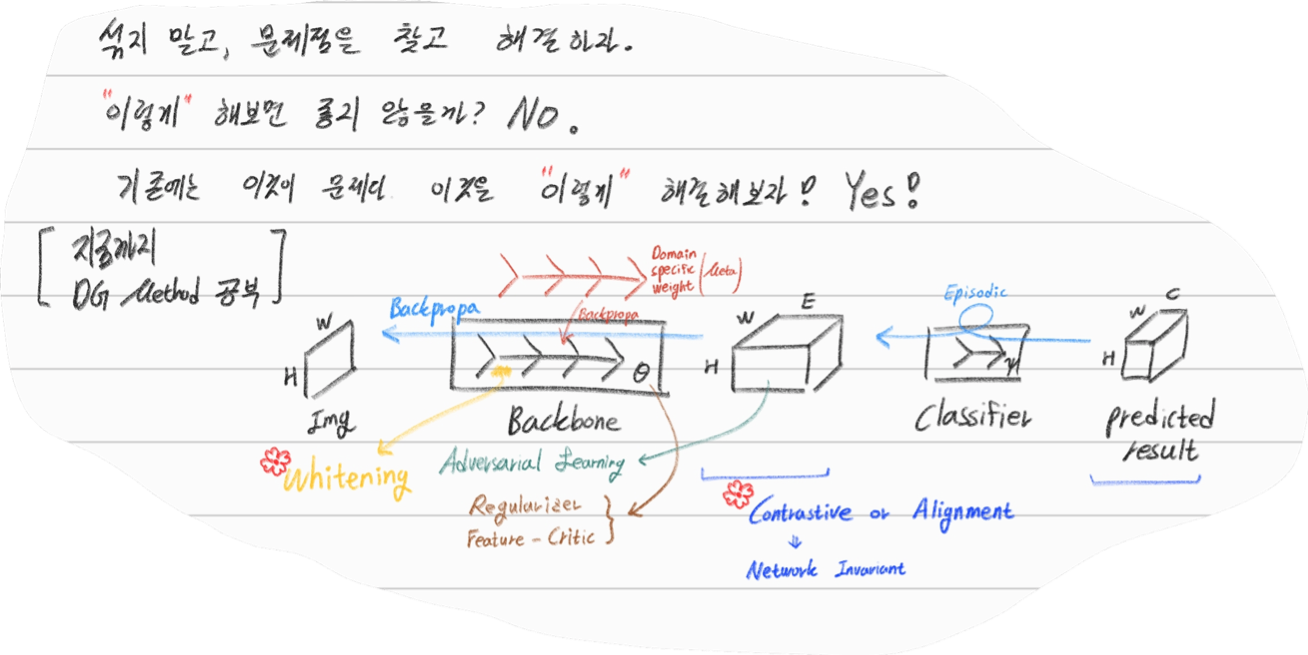 섞지 말고, 문제점을 찾고 해결하자.
"이렇게" 해보면 좋지 않을까? No.
기존에는 이것이 문제다. 이것을 "이렇게" 해결해보자! Yes!
[지금까지
DG Method 공부]
Domain
specific
weight (Meta)
Backpropa
Backpropa
Episodic
W
H
Img
θ
Backbone
W
E
H
ψ
Classifier
W
C
H
predicted
result
Whitening
Adversarial Learning
Regularizer
Feature - Critic }
Contrastive or Alignment
⇓
Network Invariant